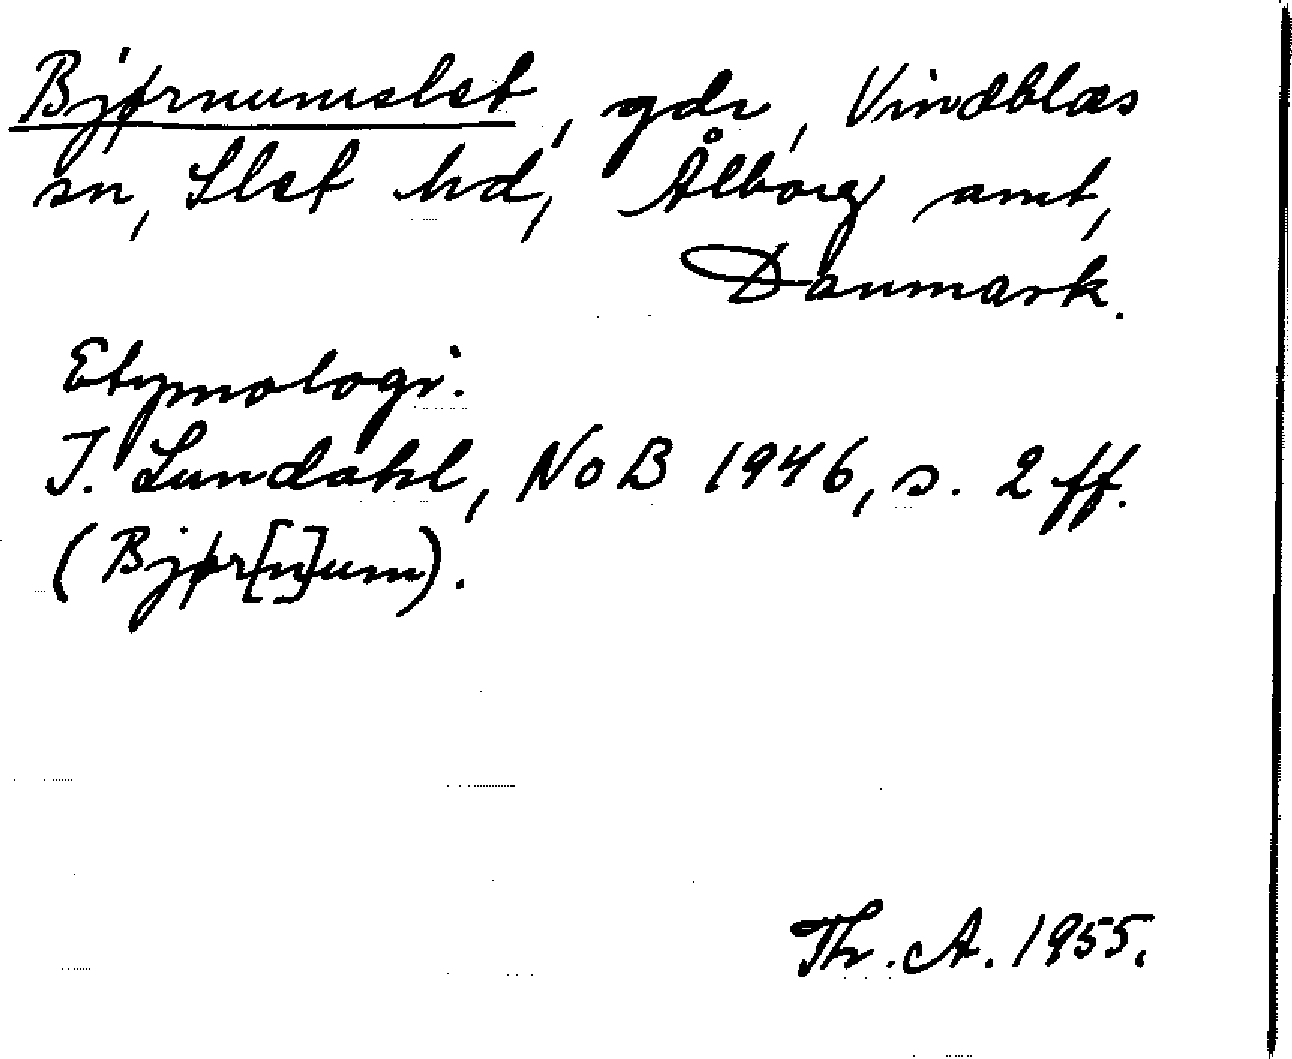 Bjørnumslet, gdr, Vindblæs
sn, Slet hd, Ålborg amt,
Danmark.
Etymologi.
I. Lundahl, NoB 1946, s. 2 ff.
(Bjør[n]um).
Th. A. 1955.